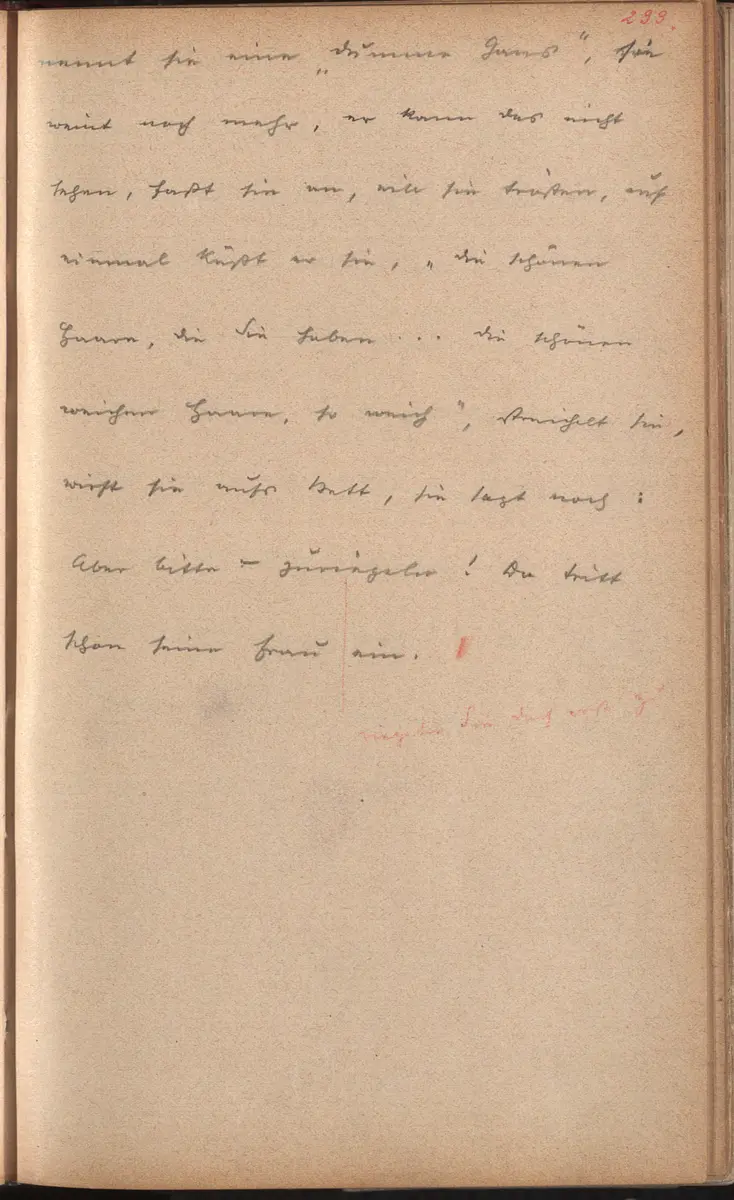 299.
nennt sie eine „dumme Gans“, sie
weint noch mehr, er kann das nicht
sehen, faßt sie an, will sie trösten, auf
einmal küßt er sie, „die schönen
Haare, die Sie haben ... die schönen
weichen Haare, so weich“, streichelt sie,
wirft sie aufs Bett, sie sagt noch:
Aber bitte – zuriegeln! Da tritt
schon seine Frau ein.
riegeln Sie doch erst zu